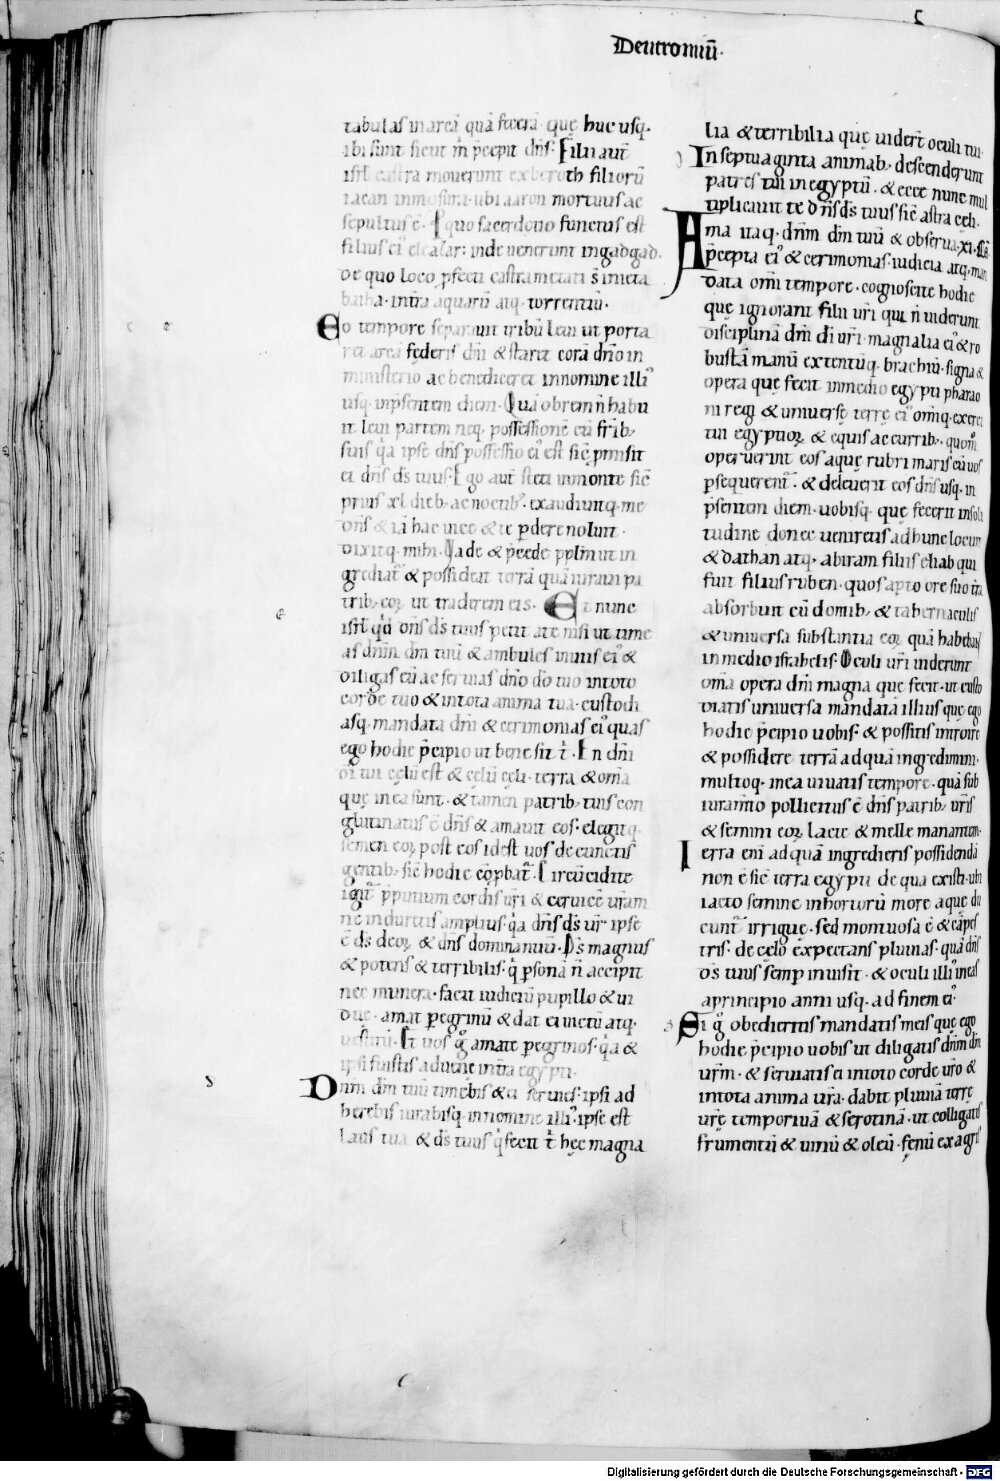 Deutromiū·
tabulas in arcā quā fecerā que huc usq·
ibi sunt sicut m̄ p̄cepit dn̄s· Filii aut̄
isrl̄ castra mouerunt ex beroth filiorū
iacan in mosera· ubi aaron mortuus ac
sepultus ē· quo sacerdotio functus est
filius ei eleazar· inde uenerunt in gadgad·
De quo loco p̄fecti castrametati s̄ in ieta
batha· in tr̄a aquarū atq· torrentiū·
Eo tempore separauit tribū leui ut porta
ret arcā fęderis dn̄i & staret corā dn̄o in
ministerio ac benediceret in nomine illi᾽
usq· in p̄sentem diem· Quā obrem n̄ habu
it leui partem neq· possessionē cū fr̄ib;
suis q̄a ipse dn̄s possessio ei᾽ est sic̄ p̄misit
ei dn̄s ds̄ tuus· Ego aut̄ steti in monte sic̄
prius xl dieb; ac noctib; exaudiuitq· me
dn̄s & iā hac uice & te p̄dere noluit·
Dixitq· mihi· Uade & p̄cede pplm̄ ut in
grediat̄ & possideat terrā quā iuraui pa
trib; eoꝝ ut traderem eis· Et nunc
isrl̄ qd̄ dn̄s ds̄ tuus petit a te nisi ut time
as dnm̄ dm̄ tuū & ambules in uiis ei᾽ &
diligas eū ac seruias dn̄o do tuo in toto
corde tuo & in tota anima tua· custodi
asq· mandata dn̄i & cerimonias ei᾽ quas
ego hodie p̄cipio ut bene sit t̄· En dn̄i
di tui cęlū est & cęlū cęli· terra & om̄a
quę in ea sunt· & tamen patrib; tuis con
glutinatus ē dn̄s & amauit eos· elegitq·
semen eoꝝ post eos id est uos de cunctis
gentib; sic̄ hodie cōp̄bat̄· Circūcidite
igit̄ p̄putium cordis ur̄i & ceruicē ur̄am
ne induretis amplius· q̄a dn̄s ds̄ ur̄ ipse
ē ds̄ deoꝝ & dn̄s dominantiū· Ds̄ magnus
& potens & terribilis· q̄ p̄sonā n̄ accipit
nec munera· facit iudiciū pupillo & ui
duę· amat peregrinū & dat ei uictū atq·
uestitū· Et uos ḡ amate peregrinos· q̄a &
ipsi fuistis aduenę in tr̄a egypti·
Dnm̄ dm̄ tuū timebis & ei seruies· ipsi ad
herebis iurabisq· in nomine illi᾽· ipse est
laus tua & ds̄ tuus q̄ fecit t̄ hęc magna
lia & terribilia quę uider̄t oculi tui·
In septuaginta animab; descenderunt
patres tui in egyptū· & ecce nunc mul
tiplicauit te dn̄s ds̄ tuus sic̄ astra cęli·
Ama itaq· dnm̄ dm̄ tuū & obserua·XI·
p̄cepta ei᾽ & cerimonias· iudicia atq· man
data om̄i tempore· cognoscite hodie
quę ignorant filii ur̄i qui n̄ uiderunt
disciplinā dn̄i di ur̄i· magnalia ei᾽ & ro
bustā manū extentūq· brachiū· signa &
opera quę fecit in medio egypti pharao
ni regi & uniuersę terrę ei᾽ omīq· exerci
tui egyptioꝝ & equis ac currib; quom̄
operuerint eos aquę rubri maris cū uos
p̄sequerent̄· & deleuerit eos dn̄s usq· in
p̄sentem diem· uobisq· quę fecerit in soli
tudine donec ueniretis ad hunc locum
& dathan atq· abiram filiis eliab qui
fuit filius ruben· quos apto ore suo tr̄a
absorbuit cū domib; & tabernaculis
& uniuersa substantia eoꝝ quā habebant
in medio israhelis· Oculi ur̄i uiderunt
om̄a opera dn̄i magna quę fecit· ut custo
diatis uniuersa mandata illius quę ego
hodie p̄cipio uobis· & possitis introire
& possidere terrā ad quā ingredimini·
multoq· in ea uiuatis tempore· quā sub
iuramto pollicitus ē dn̄s patrib; ur̄is
& semini eoꝝ lacte & melle manantem·
Terra eni ad quā ingredieris possidendā
non ē sic̄ terra egypti de qua existi· ubi
iacto semine in hortorū more aquę du
cunt̄ irriguę· sed montuosa ē & cāpes
tris· de cęlo expectans pluuias· quā dn̄s
ds̄ tuus semp̄ inuisit· & oculi illi᾽ in eas
a principio anni usq· ad finem ei᾽·
Si ḡ obedieritis mandatis meis quę ego
hodie p̄cipio uobis ut diligatis dnm̄ dm̄
ur̄m· & seruiatis ei in toto corde ur̄o &
in tota anima ur̄a· dabit pluuiā terrę
ur̄ę temporiuā & serotinā· ut colligatis
frumentū & uinū & oleū· fęnū ex agris
Digitalisierung gefördert durch die Deutsche Forschungsgemeinschaft - DFG